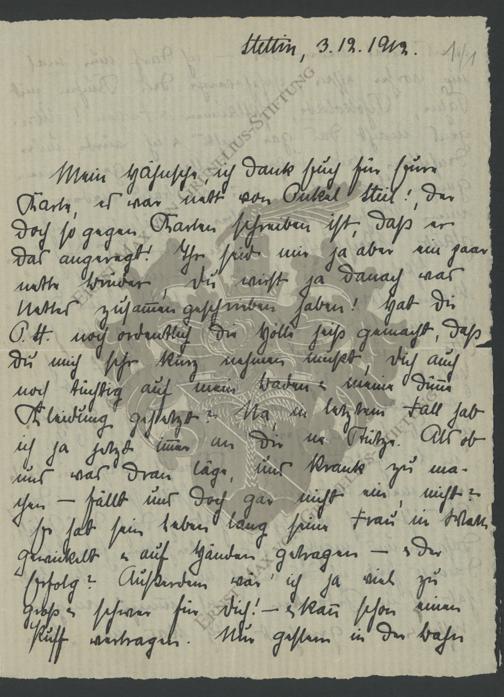 Stettin, 3.12.1912.
Mein Hähnchen, ich dank Euch für Eure
Karte, es war nett von Onkel Stiel!, der
doch so gegen Karten schreiben ist, daß er
das angeregt! Ihr seid mir ja aber ein paar
nette Brüder, Du wirst ja danach was
Nettes zusam̄engeschrieben haben! Hat Dir
O. H. noch ordentlich die Hölle heiß gemacht, daß
Du mich sehr kurz nehmen mußt, Dich auch
noch tüchtig auf mein Baden & meine dün̄e
Kleidung gehetzt? Na, in letztem Fall hab
ich ja jetzt im̄er an Dir ne Stütze. Als ob
uns was dran läge, uns krank zu ma-
chen — fällt uns doch gar nicht ein, nicht?
Er hat sein Leben lang seine Frau in Watte
gewickelt & auf Händen getragen — & der
Erfolg? Außerdem wär' ich ja viel zu
groß & schwer für Dich! — & kan̄ schon einen
Puff vertragen. Nur gestern in der Bahn